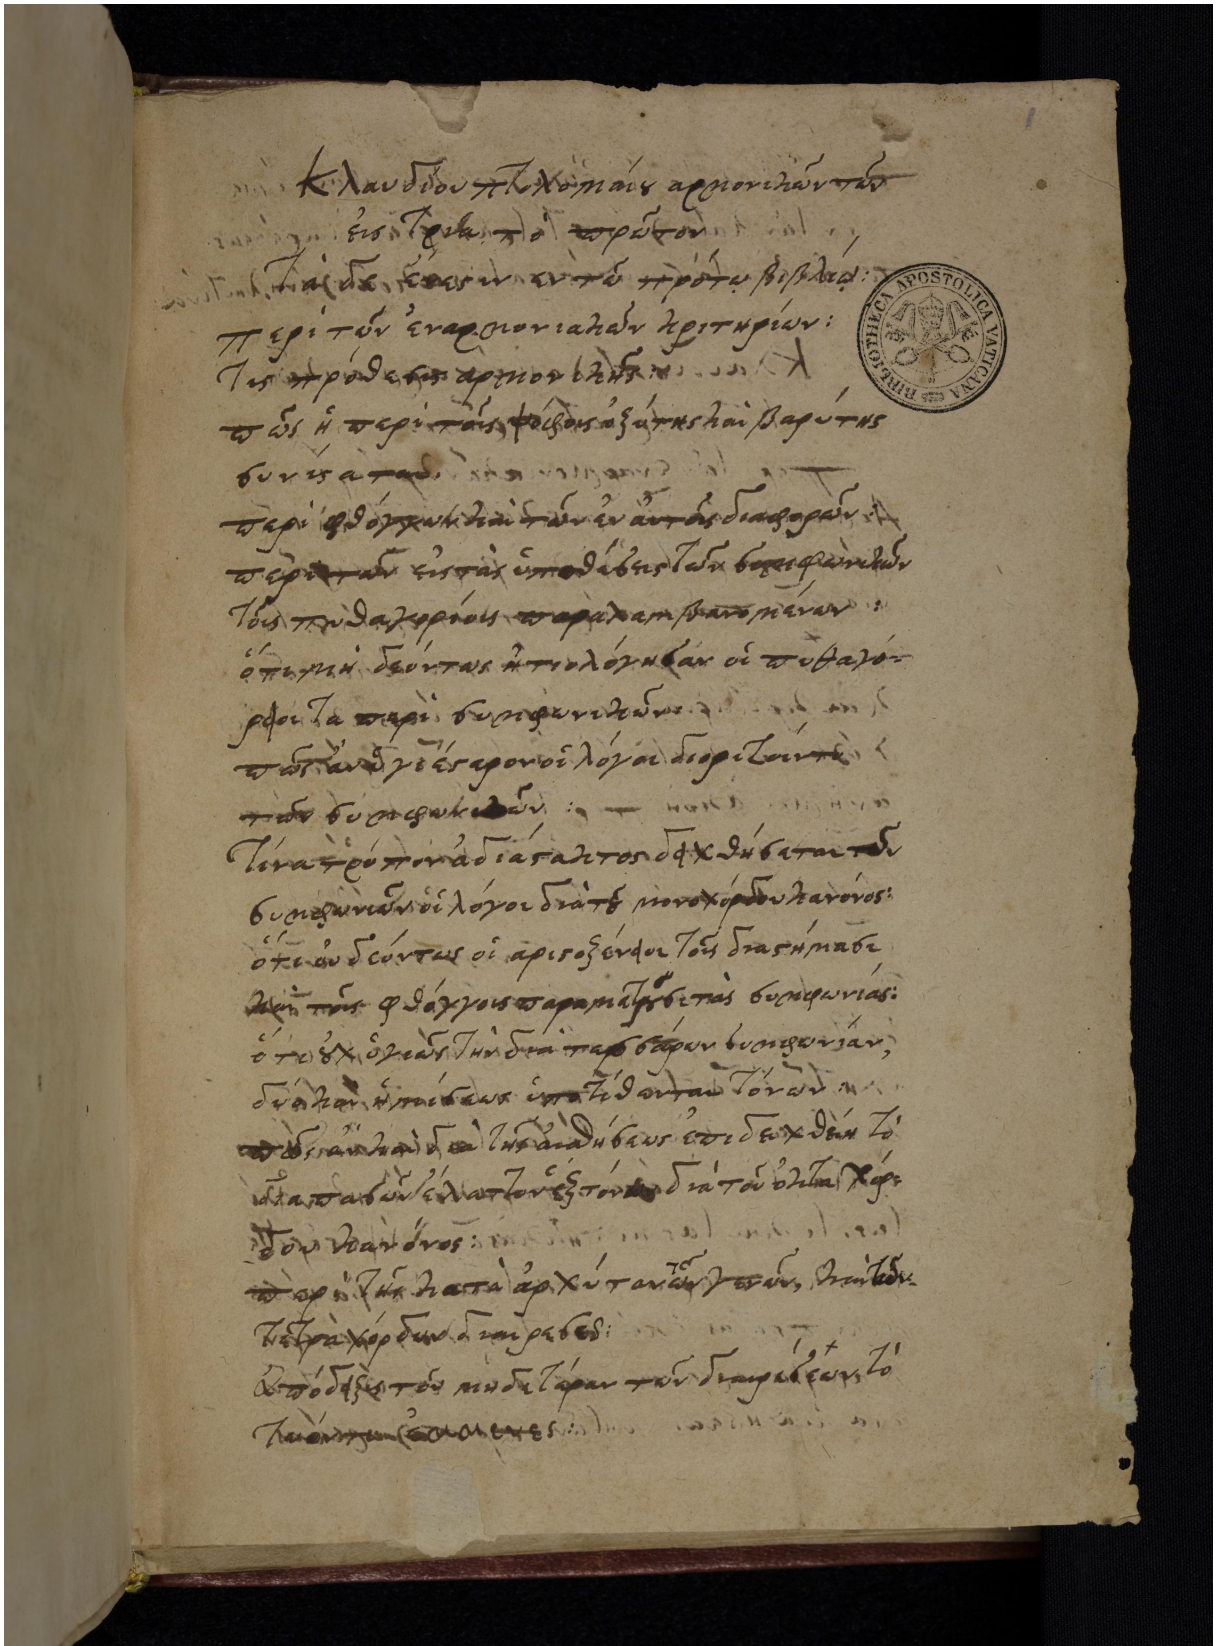 Κλαυδίου πτολομαίου αρμονικῶν τῶν
εις τρία τὸ πρῶτον
Τάδε ένεστιν εν τῶ πρότω βιβλίω:
περί τῶν ἐναρμονιακῶν κριτηρίων:
Τις πρόθεσις αρμονικῆς:
πῶς ἡ περί τοῖς ψόφοις ὀξύτης και βαρύτης
συνίσταται
περί φθόγγων και τῶν ἐν ἀυτοῖς διαφορῶν:
περί τῶν εις τὰς ὑποθέσεις τῶν συμφωνιῶν
τοῖς πυθαγορίοις παραλαμβανομένων:
ὅτι μὴ δεόντως ἠτιολόγησαν οἱ πυθαγό-
ρειοι τα περὶ συμφωνιῶν:
πῶς ἂν ὑγιέστερον οἱ λόγοι διορίζοιντο
τῶν συμφωνιῶν:
Τίνα τρόπον ἀδιάστακτος δειχθήσεται τῶν
συμφωνιῶν οἱ λόγοι διὰ τοῦ μονοχόρδου κανόνος:
ὅτι ου δεόντως οἱ αριστοξένειοι τοῖς διαστήμασι
καὶ τοῖς φθόγγοις παραμετροῦσι τὰς συμφωνίας:
ὅτι οὐχ ὑγιῶς τὴν διὰ τεσσάρων συμφωνίαν,
δύο και ἡμίσεως ὑποτίθενται τόνων
πῶς ἂν και διὰ τῆς αισθήσεως ἐπιδειχθείη τὸ
δια πασῶν έλαττον ἓξ τόνων διὰ τοῦ ὀκταχόρ-
δου κανόνος:
περὶ τῆς κατὰ ἀρχύταν τῶν γενῶν, και τῶν
τετραχόρδων διαιρέσεως:
Ἀπόδειξις τοῦ μηδετέραν τῶν διαιρέσεων, τὸ